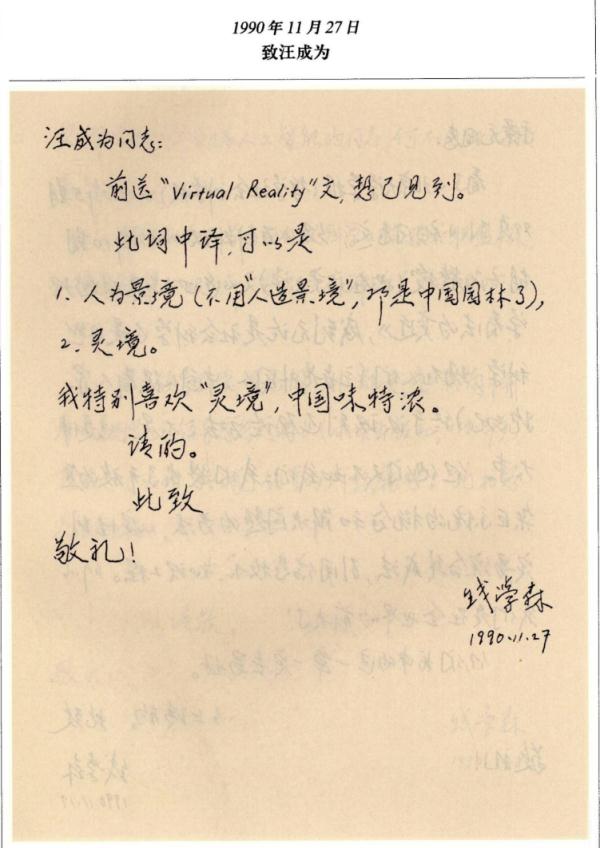 1990年11月27日
致汪成为
汪成为同志：
前送“Virtual Reality”文，想已见到。
此词中译，可以是
1. 人为景境（不用“人造景境”，那是中国园林了），
2. 灵境。
我特别喜欢“灵境”，中国味特浓。
请酌。
此致
敬礼！
钱学森
1990.11.27